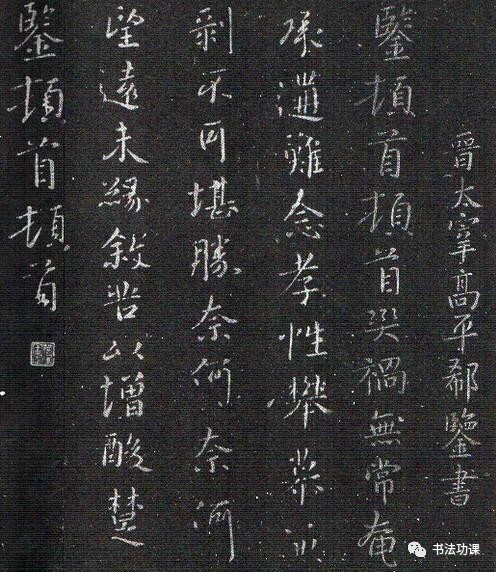 晉太宰高平郗鑒書
鑒頓首頓首災禍無常奄
承遘難念孝性攀慕兼
剥不可堪勝奈何奈何
望遠未緣敘苦以增酸楚
鑒頓首頓首
书法功课